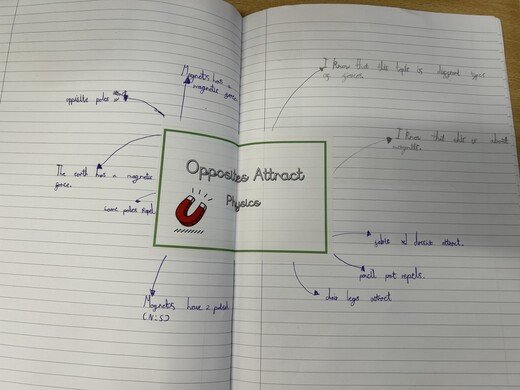 Magnets has a
magnetic force.
opposite poles
The earth has a magnetic
force.
same poles repel
Magnets have 2 poles
(N:S)
Opposites Attract
Physics
I Know that this topic is different types
of forces.
I Know that this is about
magnets.
attract.
pencil pot repels.
chair legs attract